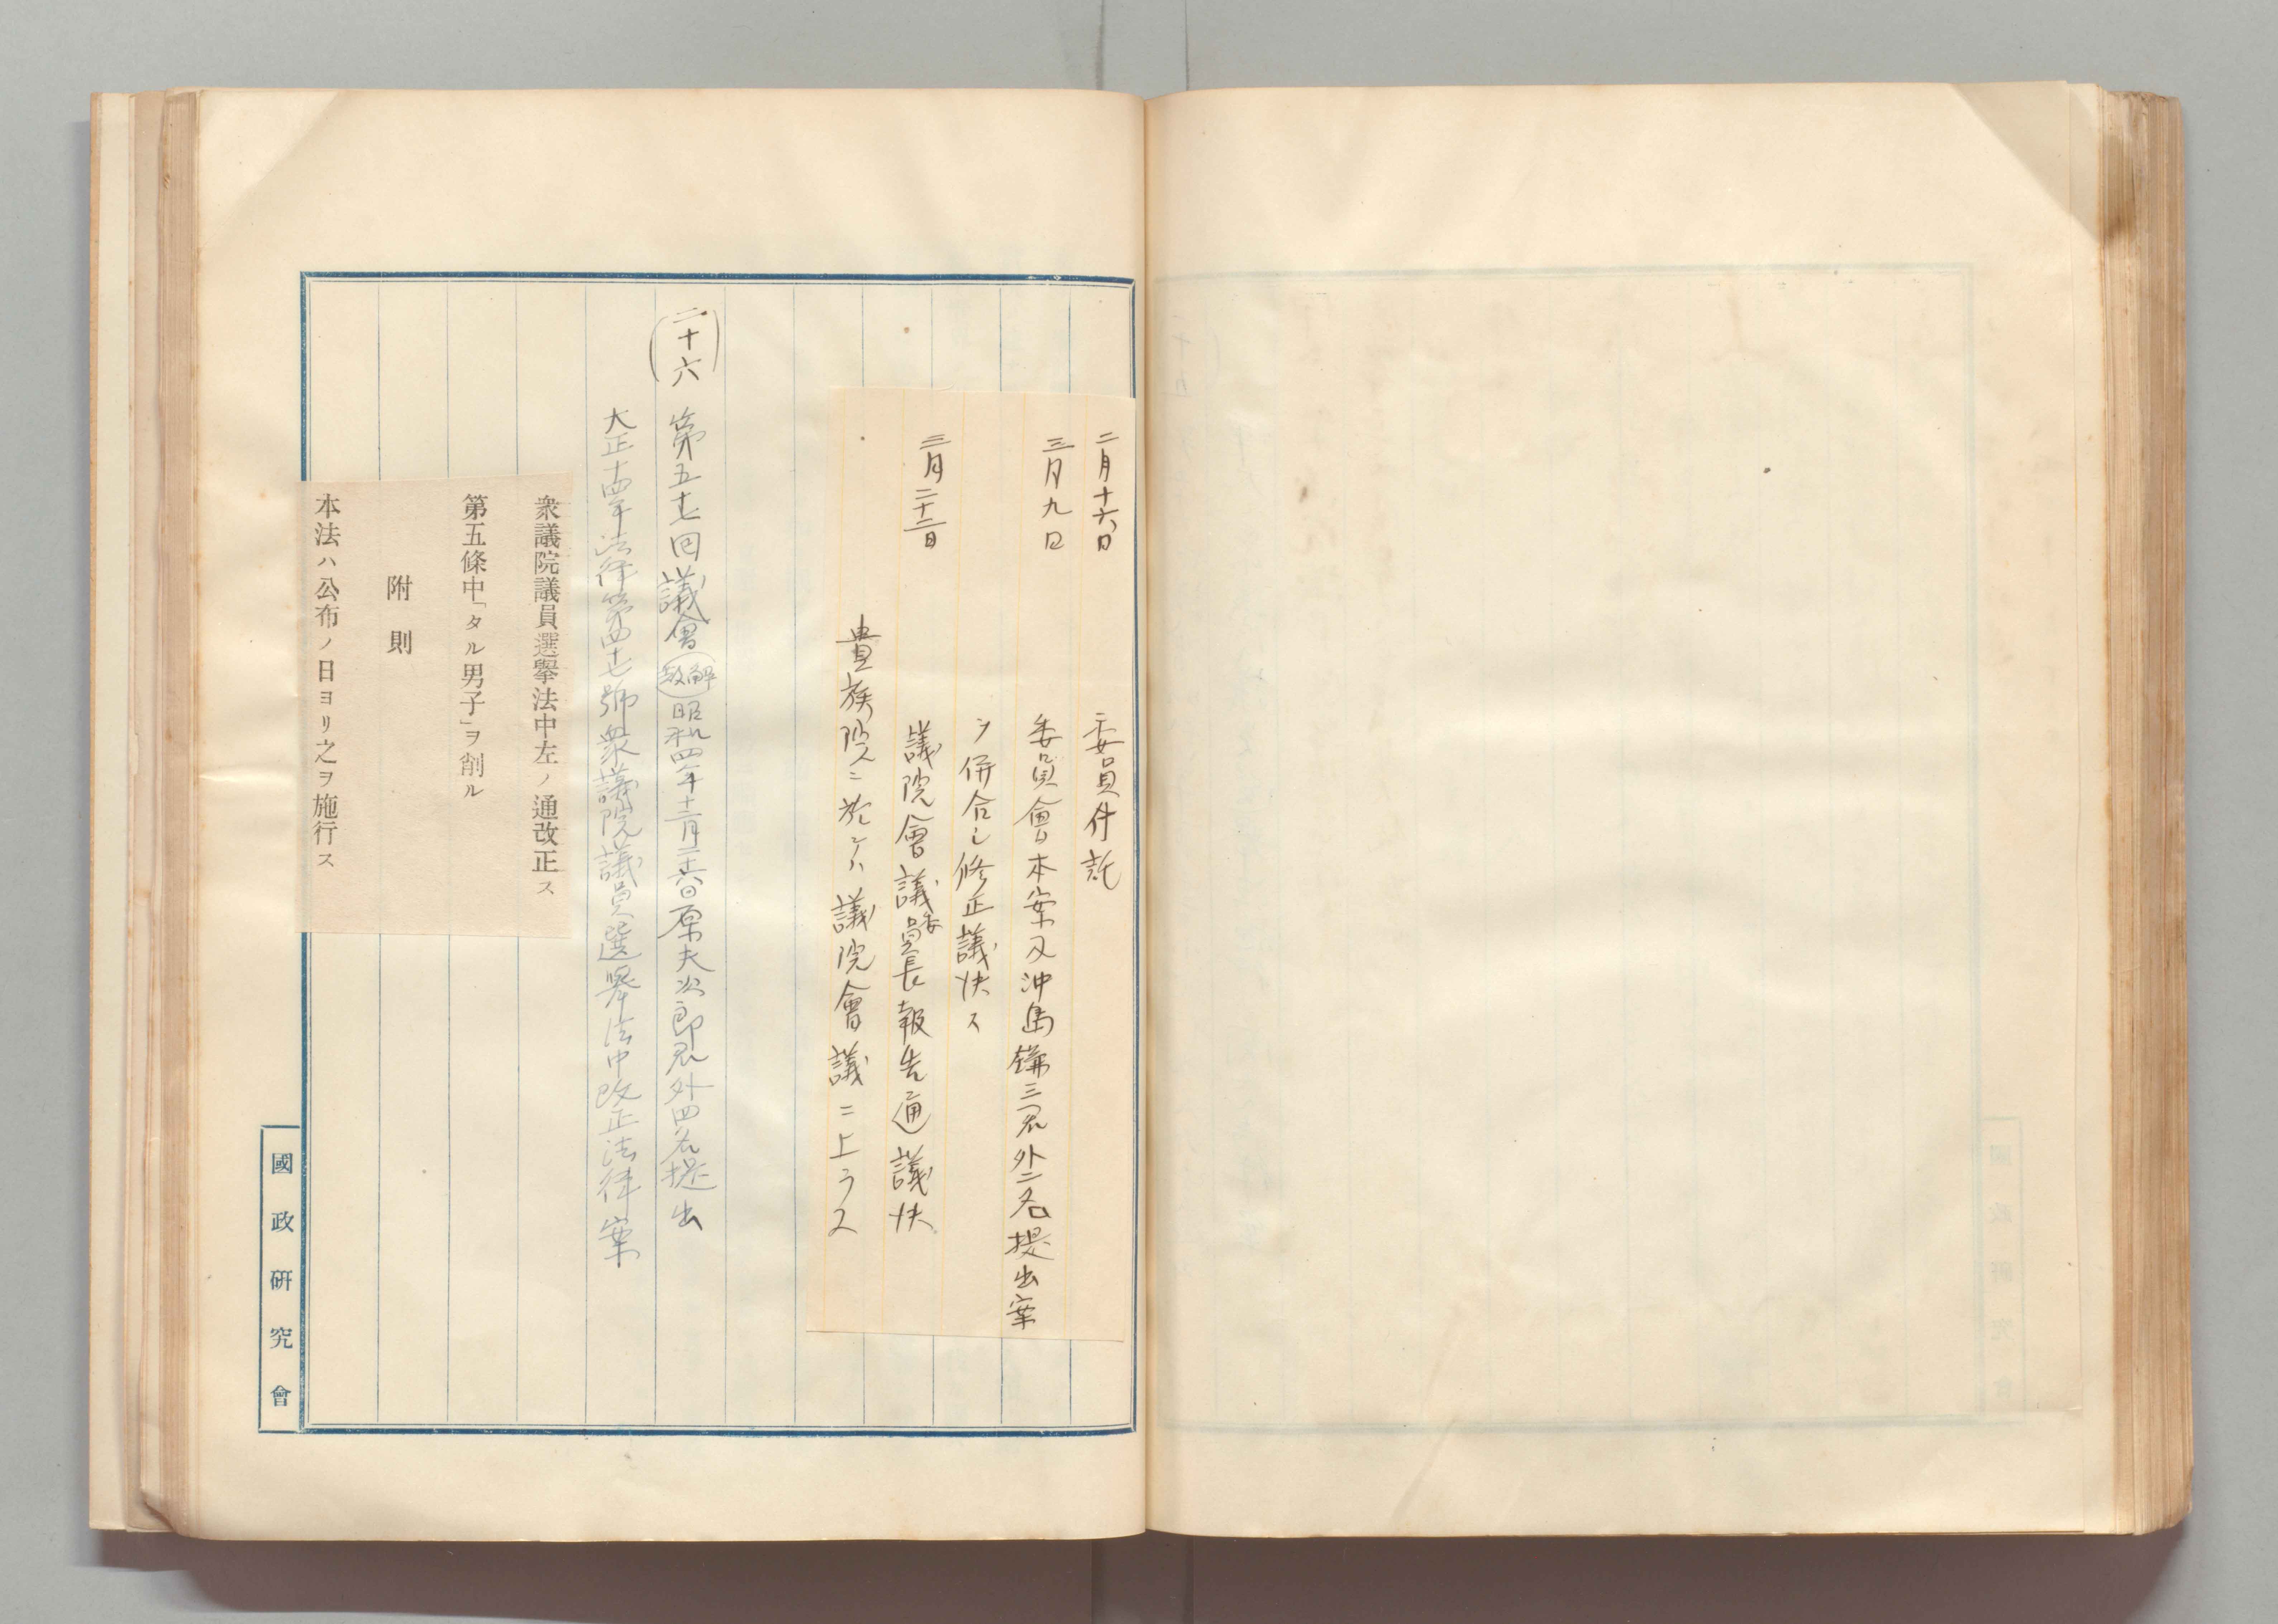 二月十六日　委員付託
三月九日　委員會本案及沖島鎌三君外二名提出案
ヲ併合シ修正議決ス
三月二十二日　議院會議委員長報告通議決
貴族院ニ於テハ議院會議ニ上ラス
(二十六)　第五十七回議會(解散)昭和四年十二月二十六日原夫次郎君外四名提出
大正十四年法律第四十七號衆議院議員選擧法中改正法律案
衆議院議員選擧法中左ノ通改正ス
第五條中「タル男子」ヲ削ル
附則
本法ハ公布ノ日ヨリ之ヲ施行ス
國政硏究會